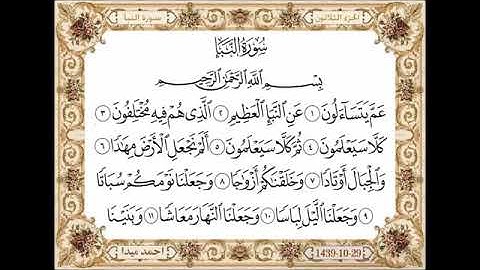 الجزء الثلاثون
سورة النبأ
سُورَةُ النَّبَإِ
بِسْمِ ٱللَّهِ ٱلرَّحْمَٰنِ ٱلرَّحِيمِ
عَمَّ يَتَسَآءَلُونَ ١ عَنِ ٱلنَّبَإِ ٱلْعَظِيمِ ٢ ٱلَّذِى هُمْ فِيهِ مُخْتَلِفُونَ ٣
كَلَّا سَيَعْلَمُونَ ٤ ثُمَّ كَلَّا سَيَعْلَمُونَ ٥ أَلَمْ نَجْعَلِ ٱلْأَرْضَ مِهَٰدًا ٦
وَٱلْجِبَالَ أَوْتَادًا ٧ وَخَلَقْنَٰكُمْ أَزْوَٰجًا ٨ وَجَعَلْنَا نَوْمَكُمْ سُبَاتًا
٩ وَجَعَلْنَا ٱلَّيْلَ لِبَاسًا ١٠ وَجَعَلْنَا ٱلنَّهَارَ مَعَاشًا ١١ وَبَنَيْنَا
1439-10-29
احمد ميدا